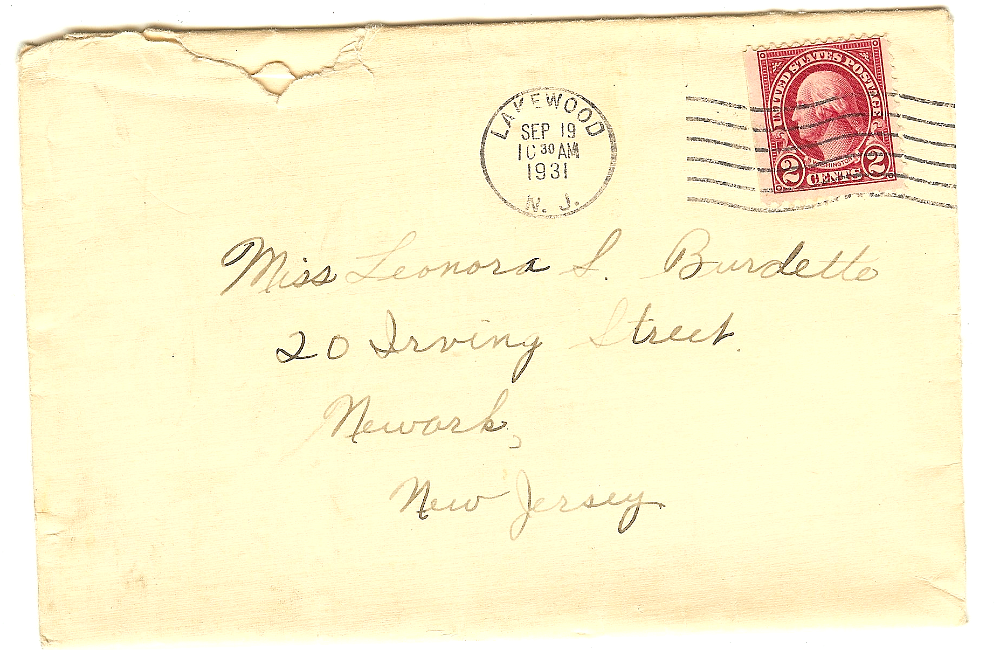 LAKEWOOD
SEP 19
10 30 AM
1931
N. J.
UNITED STATES POSTAGE
WASHINGTON
2 CENTS 2
Miss Leonora S. Burdette
20 Irving Street.
Newark,
New Jersey.